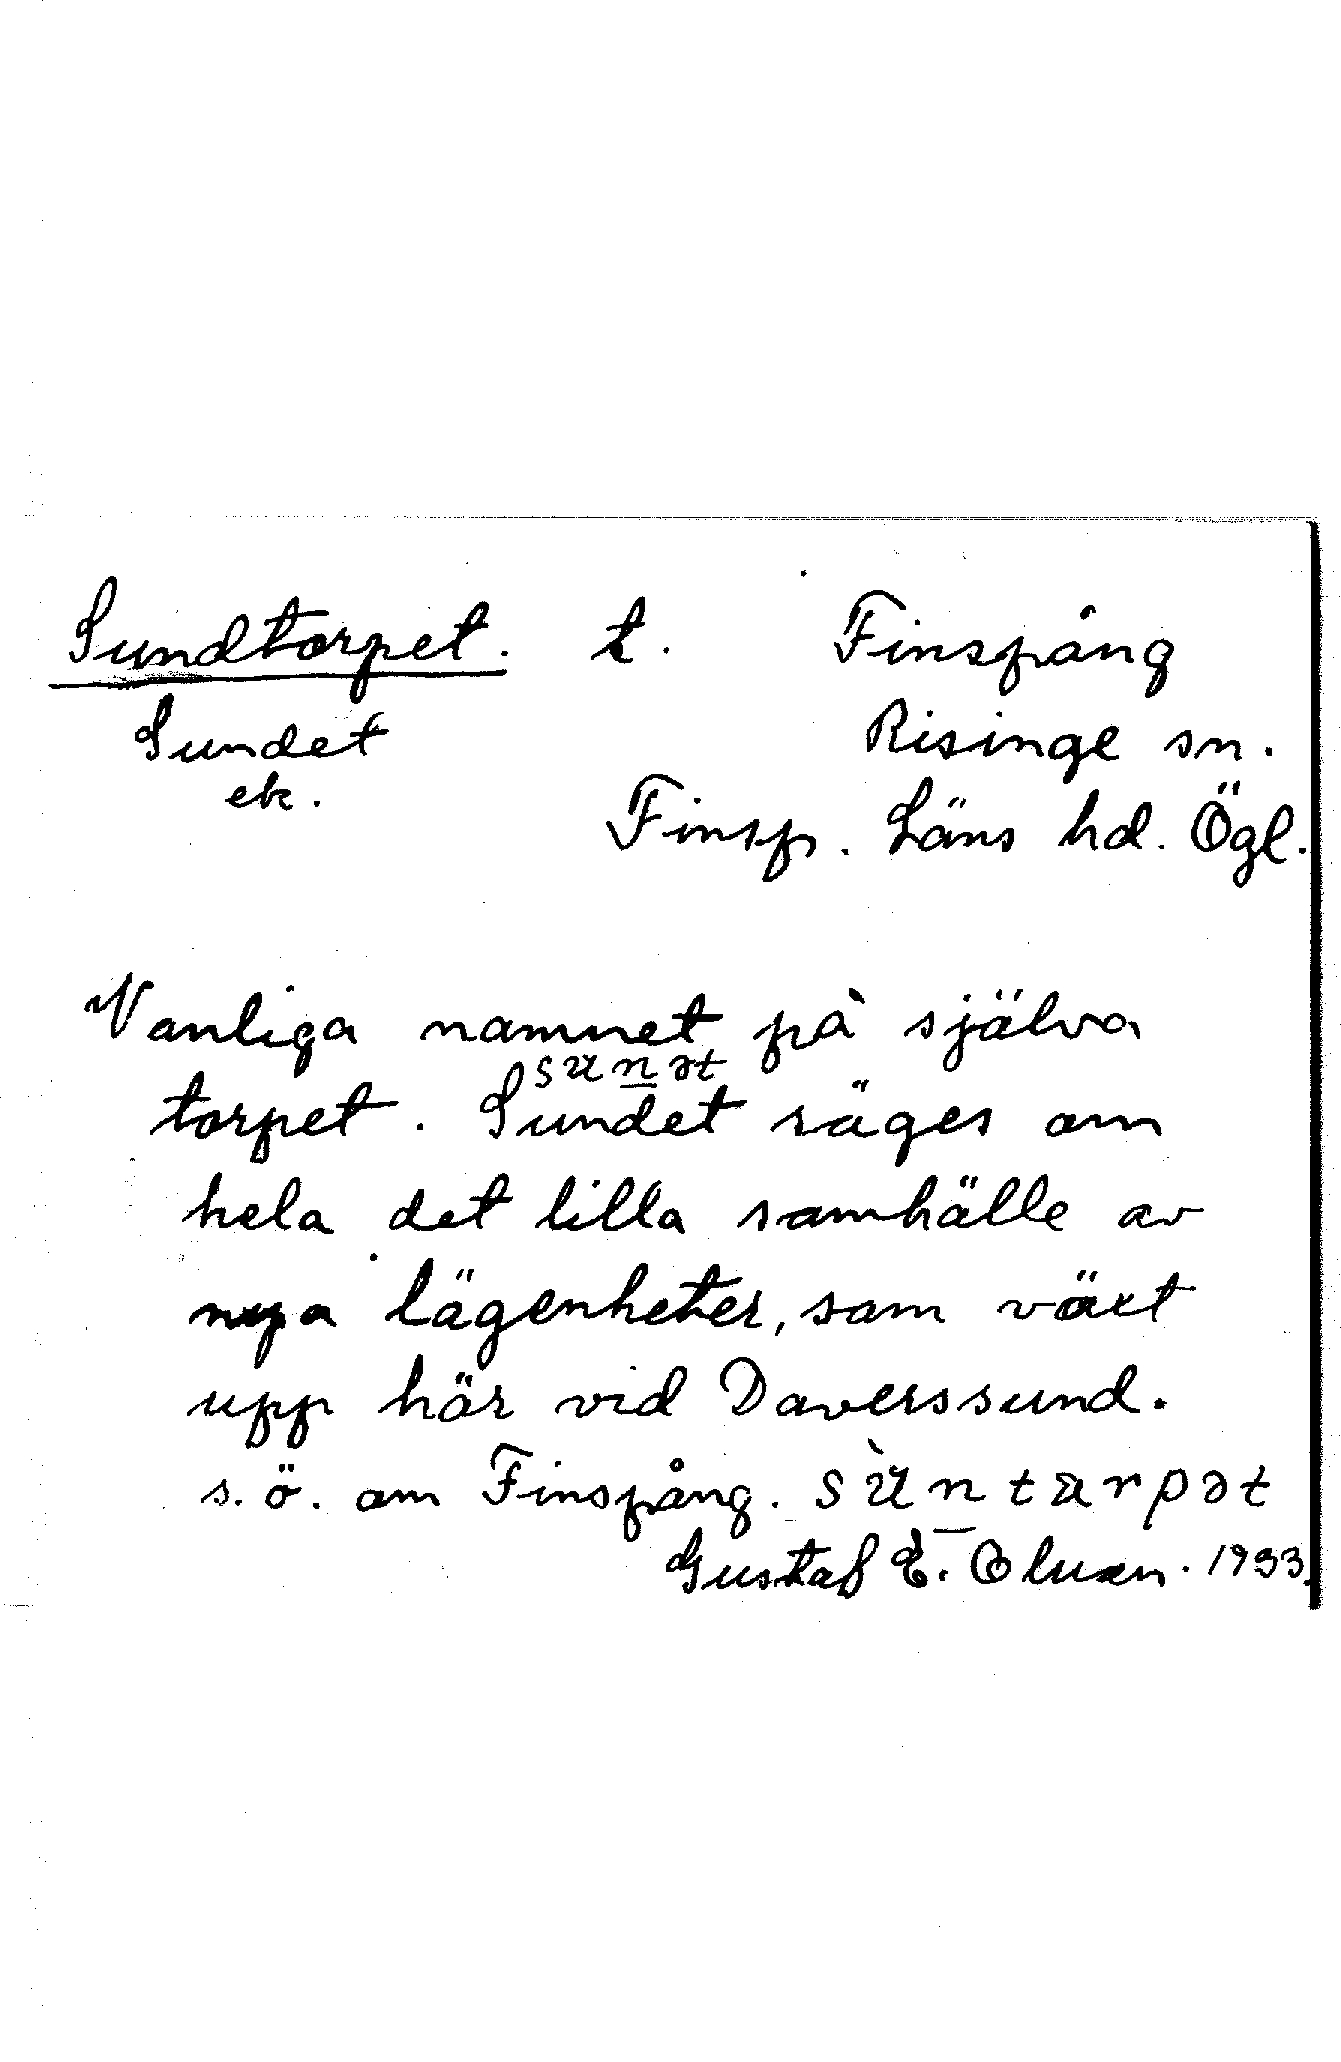 Sundtorpet. t. Finspång
Sundet Risinge sn.
ek. Finsp. Läns hd. Ögl.
Vanliga namnet på själva
sun̲ət
torpet. Sundet säges om
hela det lilla samhälle av
nya lägenheter, som växt
upp här vid Daverssund.
s.ö. om Finspång. sùn̲tarpət
Gustaf E. Oluen. 1933.